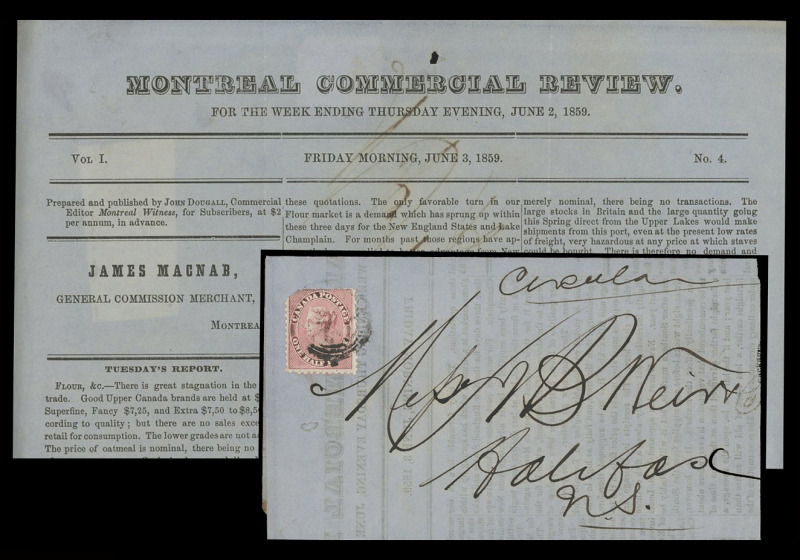 MONTREAL COMMERCIAL REVIEW.
FOR THE WEEK ENDING THURSDAY EVENING, JUNE 2, 1859.
VOL I.
FRIDAY MORNING, JUNE 3, 1859.
No. 4.
Prepared and published by JOHN DOUGALL, Commercial
Editor Montreal Witness, for Subscribers, at $2
per annum, in advance.
JAMES MACNAB,
GENERAL COMMISSION MERCHANT,
MONTREA
TUESDAY'S REPORT.
FLOUR, &C.—There is great stagnation in the
trade. Good Upper Canada brands are held at $
Superfine, Fancy $7,25, and Extra $7,50 to $8,50
cording to quality; but there are no sales exce
retail for consumption. The lower grades are not a
The price of oatmeal is nominal, there being no
these quotations. The only favorable turn in our
Flour market is a demand which has sprung up within
these three days for the New England States and Lake
Champlain. For months past those regions have ap-
merely nominal, there being no transactions. The
large stocks in Britain and the large quantity going
this Spring direct from the Upper Lakes would make
shipments from this port, even at the present low rates
of freight, very hazardous at any price at which staves
could be bought. There is therefore no demand and
Circular
CANADA POSTAGE
Messrs
Weir
Halifax
N.S.